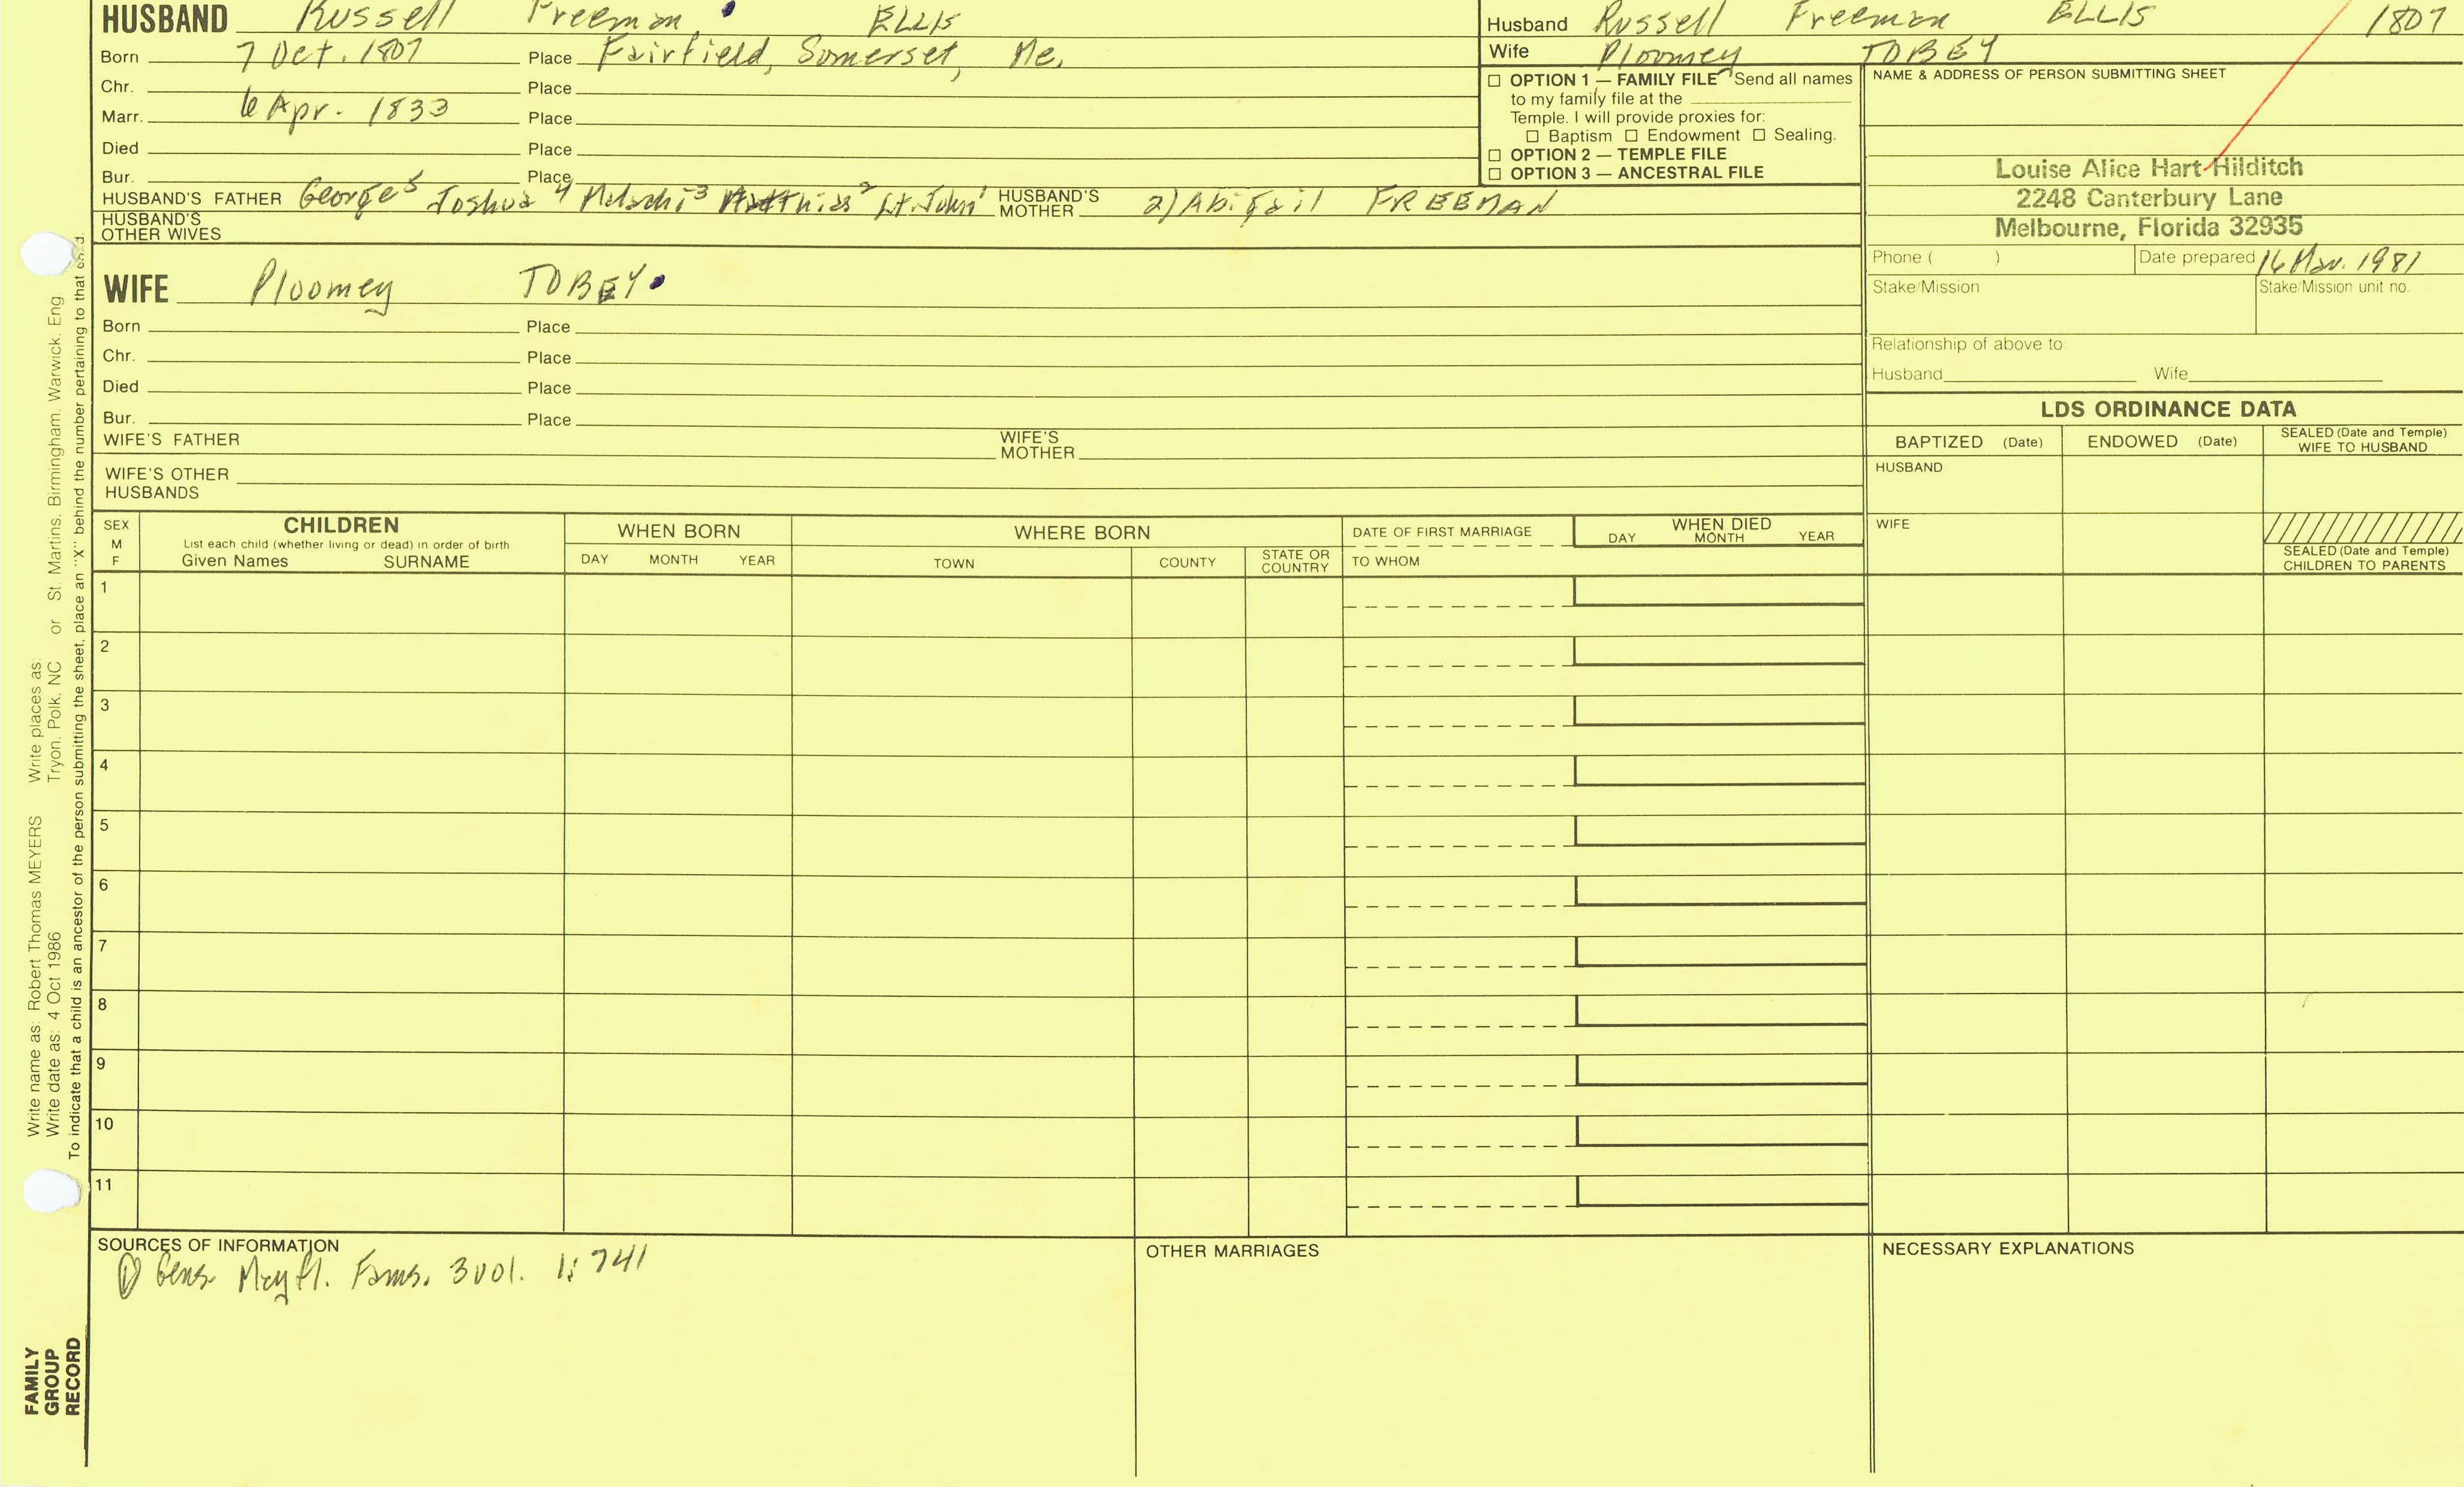 HUSBAND Russell Freeman ELLIS
Born 7 Oct. 1807 Place Fairfield, Somerset, Me.
Chr. Place
Marr. 6 Apr. 1833 Place
Died Place
Bur. Place
HUSBAND'S FATHER George⁵ Joshua⁴ Malachi³ Matthias² Lt. John¹ HUSBAND'S MOTHER 2) Abigail FREEMAN
HUSBAND'S OTHER WIVES
Husband Russell Freeman ELLIS 1807
Wife Ploomey TOBEY
☐ OPTION 1 — FAMILY FILE Send all names
to my family file at the
Temple. I will provide proxies for:
☐ Baptism ☐ Endowment ☐ Sealing.
☐ OPTION 2 — TEMPLE FILE
☐ OPTION 3 — ANCESTRAL FILE
NAME & ADDRESS OF PERSON SUBMITTING SHEET
Louise Alice Hart Hilditch
2248 Canterbury Lane
Melbourne, Florida 32935
Phone ( ) Date prepared 16 Mar. 1981
Stake/Mission Stake/Mission unit no.
Relationship of above to:
Husband Wife
WIFE Ploomey TOBEY
Born Place
Chr. Place
Died Place
Bur. Place
WIFE'S FATHER WIFE'S MOTHER
WIFE'S OTHER
HUSBANDS
LDS ORDINANCE DATA
BAPTIZED (Date) ENDOWED (Date) SEALED (Date and Temple) WIFE TO HUSBAND
HUSBAND
WIFE
SEALED (Date and Temple)
CHILDREN TO PARENTS
SEX
M
F
CHILDREN
List each child (whether living or dead) in order of birth
Given Names SURNAME
WHEN BORN
DAY MONTH YEAR
WHERE BORN
TOWN COUNTY STATE OR COUNTRY
DATE OF FIRST MARRIAGE
TO WHOM
WHEN DIED
DAY MONTH YEAR
1
2
3
4
5
6
7
8
9
10
11
SOURCES OF INFORMATION
① Gens. Mayfl. Fams. 3 vol. 1: 741
OTHER MARRIAGES
NECESSARY EXPLANATIONS
Write name as: Robert Thomas MEYERS Write places as:
Write date as: 4 Oct 1986 Tryon, Polk, NC or St. Martins, Birmingham, Warwick, Eng
To indicate that a child is an ancestor of the person submitting the sheet, place an "X" behind the number pertaining to that
FAMILY
GROUP
RECORD